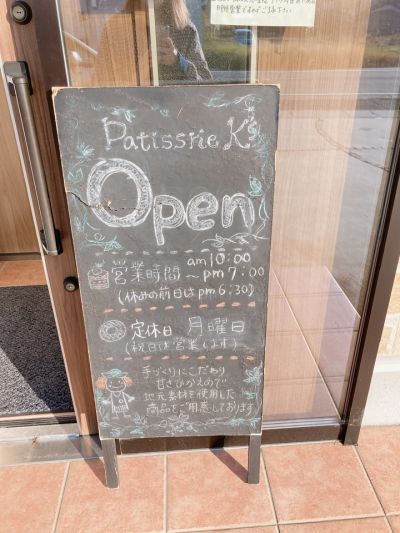 Patissrie K's
Open
営業時間 am 10:00
～pm 7:00
(休めの前日は pm 6:30)
定休日 月曜日
(祝日は営業します)
手づくりにこだわり
甘さひかえめので
地元素材を使用した
商品をご用意しております